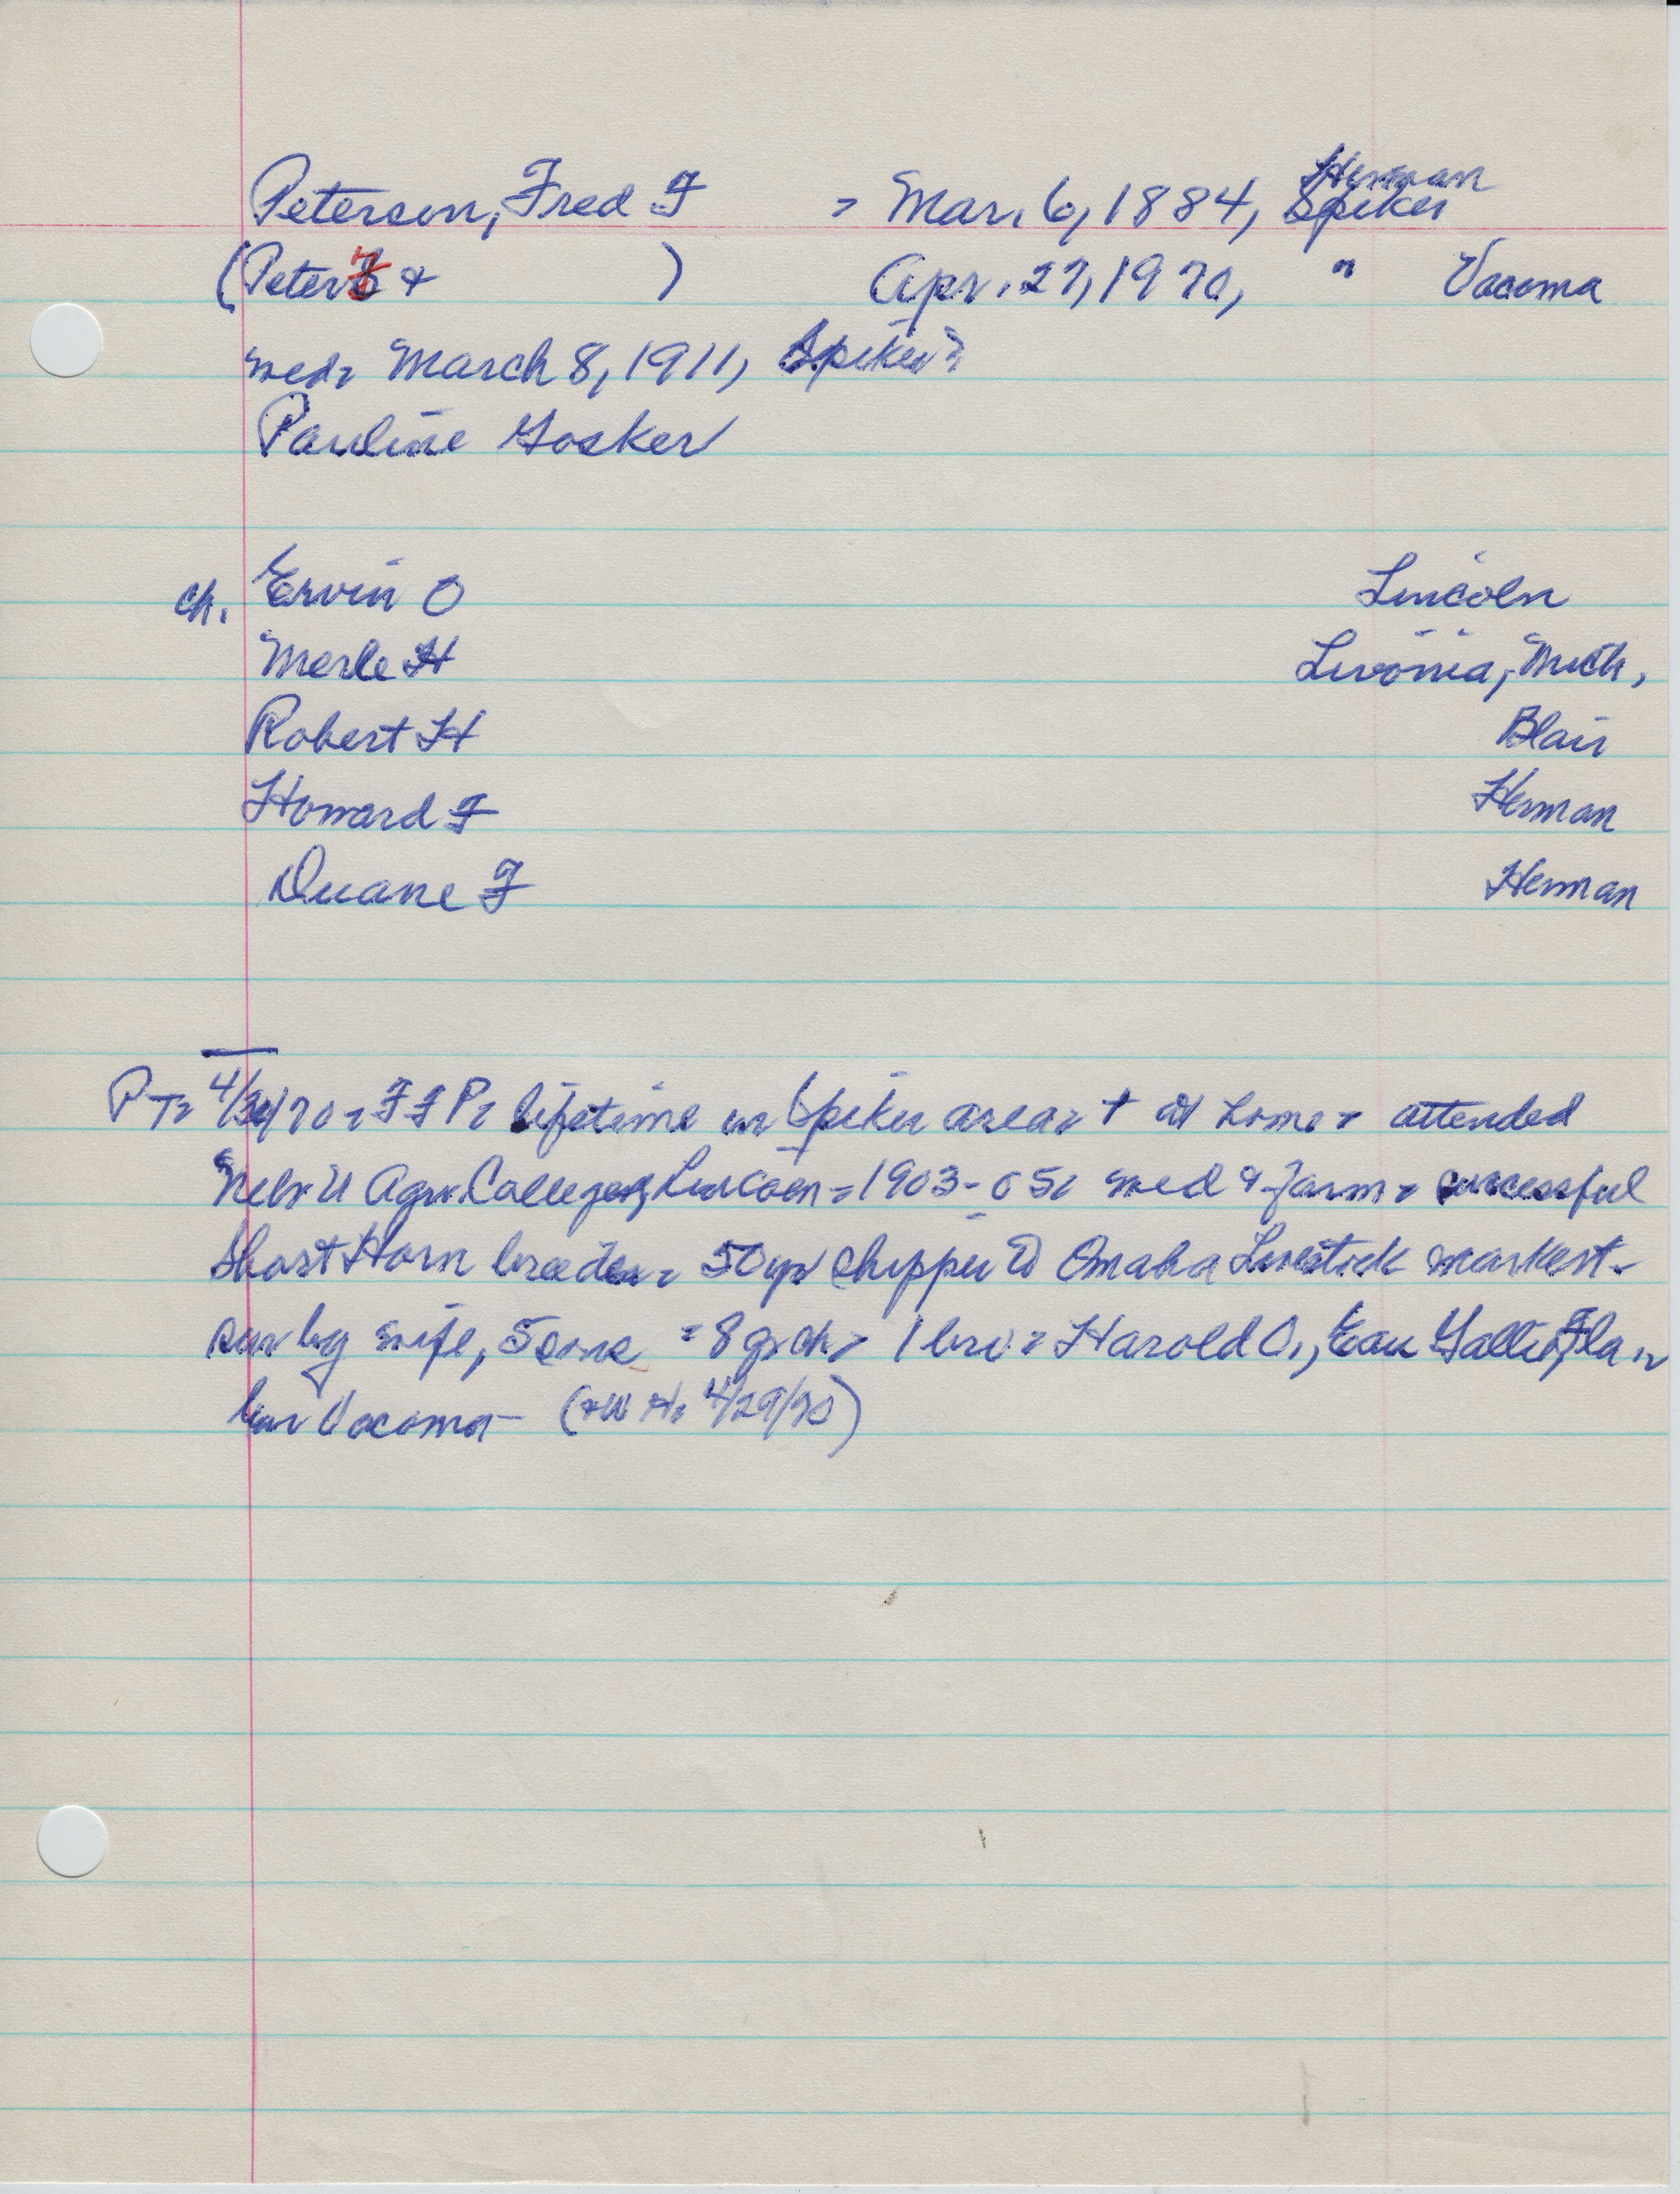 Peterson, Fred F = Mar. 6, 1884, Herman Spiker
(Peter & ) Apr. 27, 1970, " Vacoma
wed = March 8, 1911, Spiker =
Pauline Gosker
ch. Ervin O Lincoln
Merle H Livonia, Mich,
Robert H Blair
Howard F Herman
Duane F Herman
PT = 4/30/70 = F F P = lifetime in Spiker area = + at home = attended
Nebr U Agri. College, Lincoln = 1903-05 = wed & farm = successful
Short Horn breeder = 50 yr shipper to Omaha Livestock market -
sur by wife, 5 sons = 8 gr ch = 1 bro = Harold O., Eau Gallie, Fla =
bur Vacoma - ( 4/29/70)